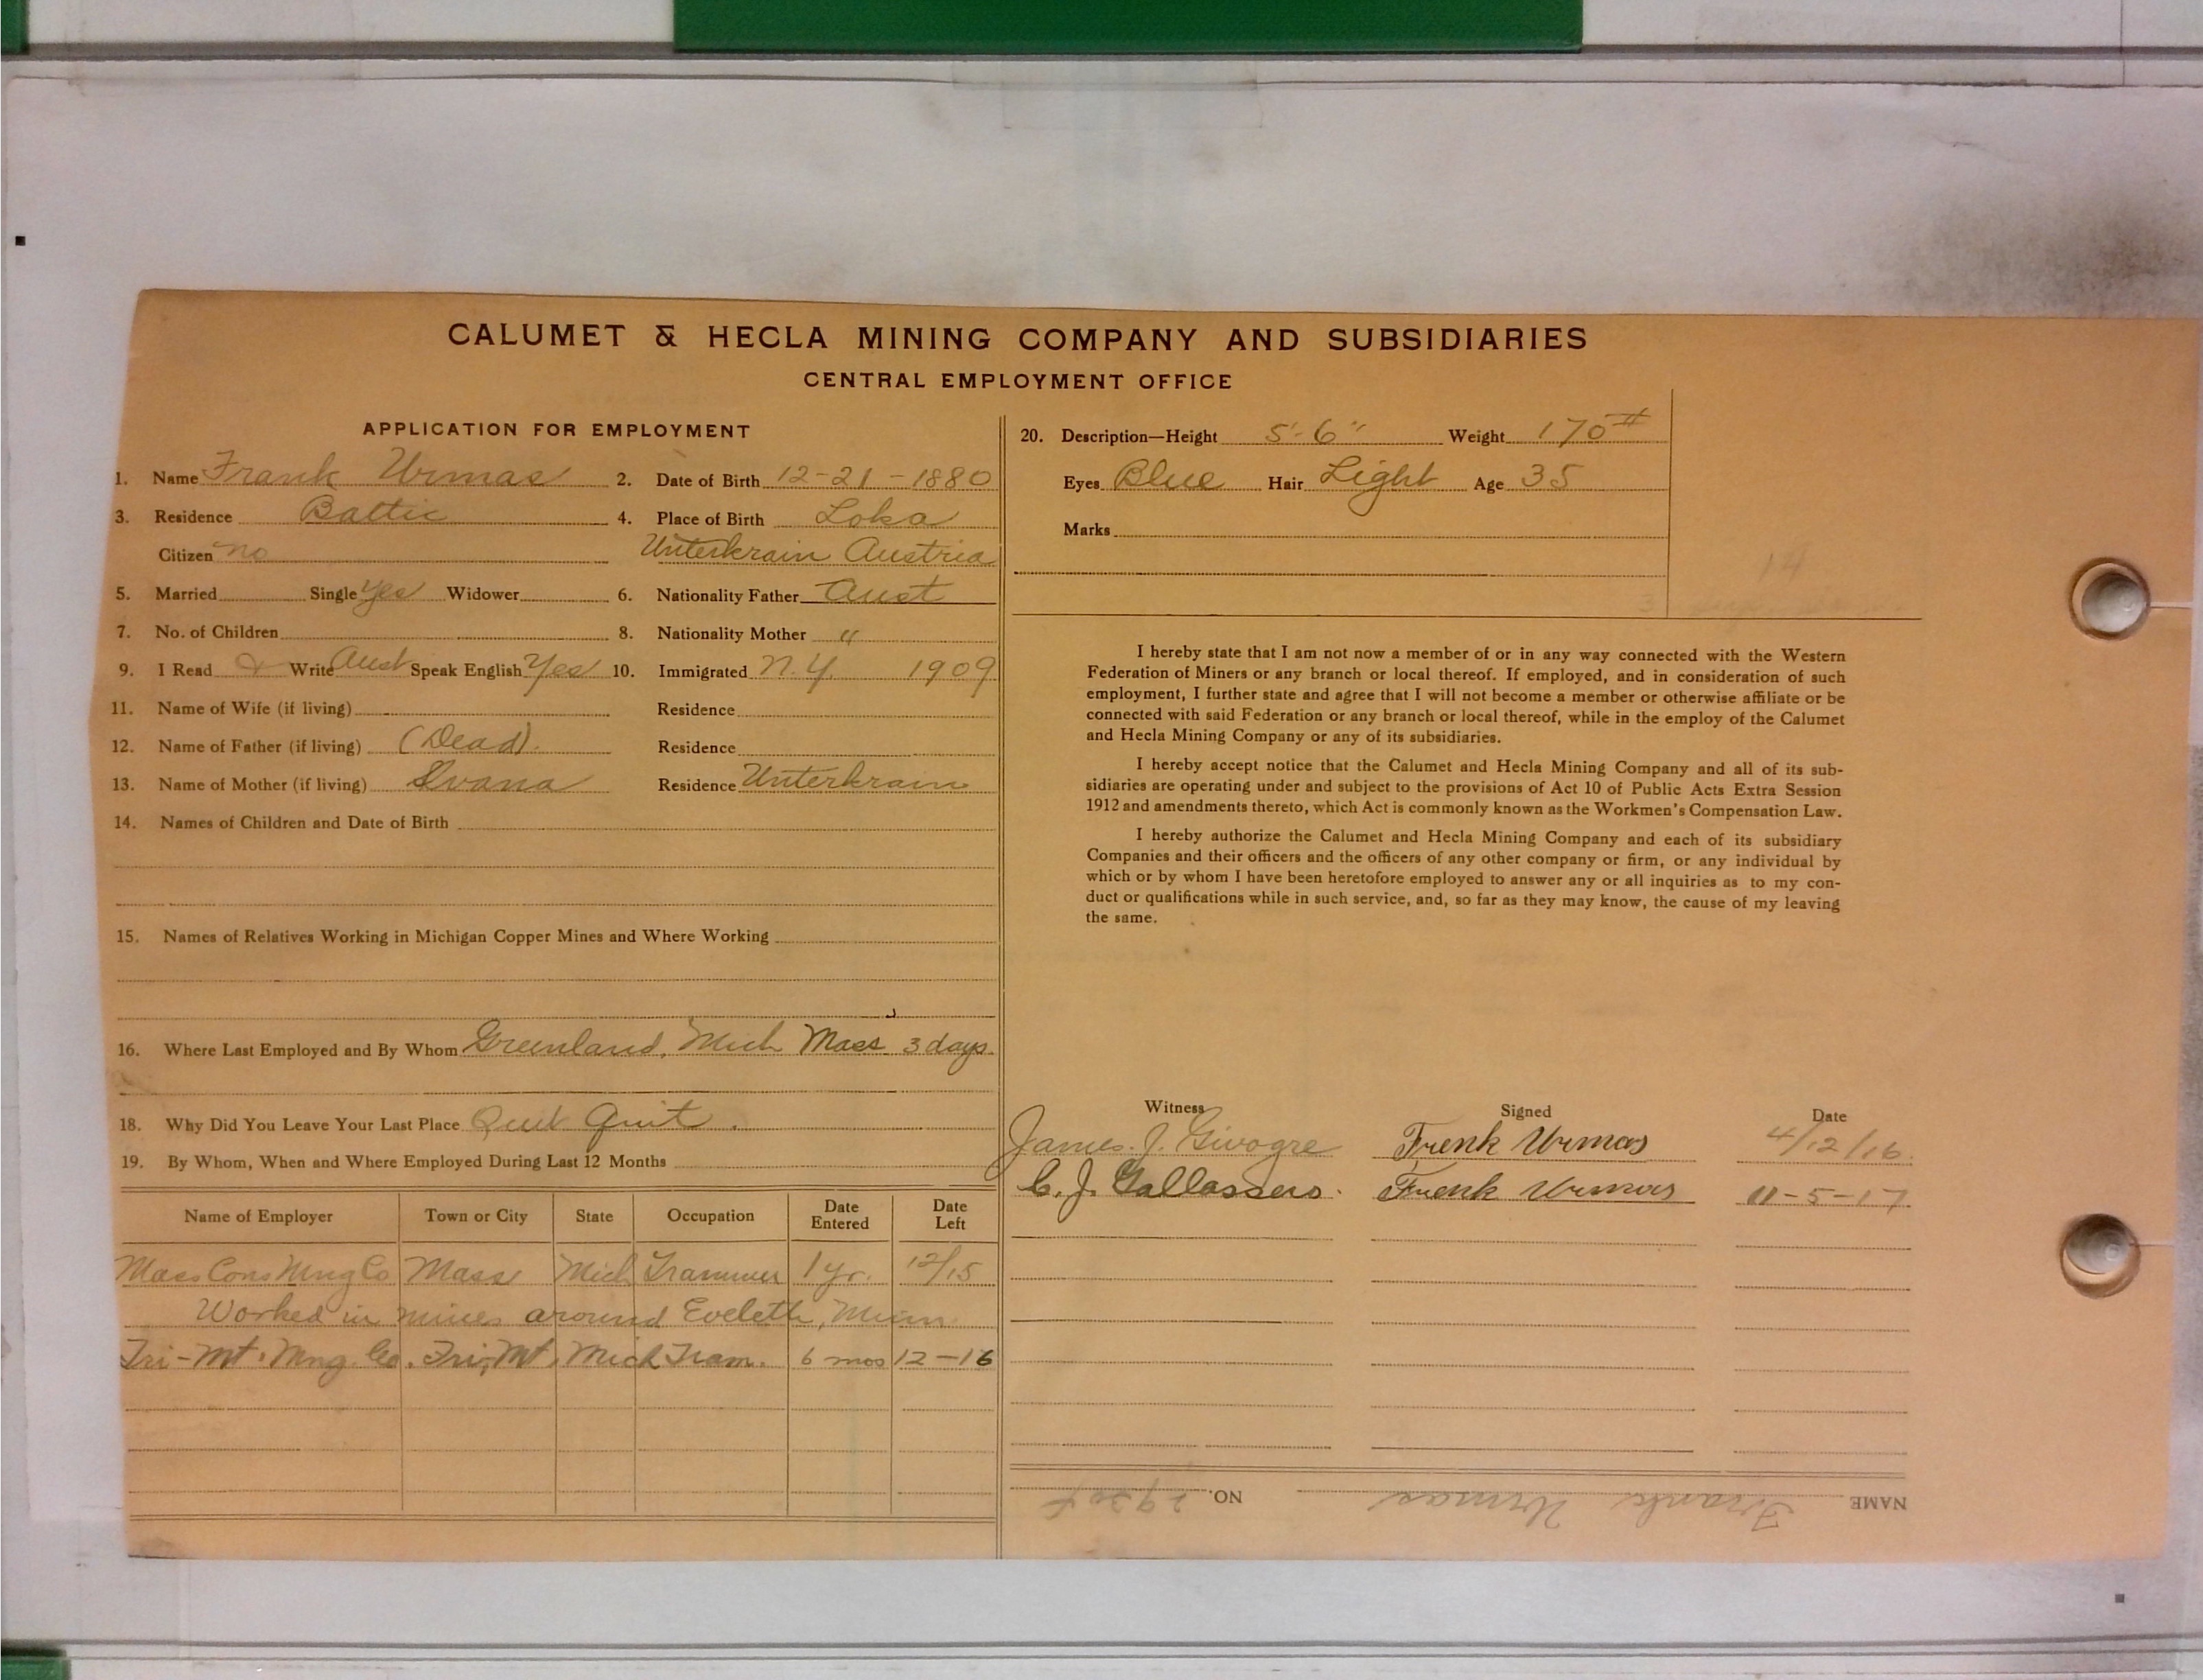 CALUMET & HECLA MINING COMPANY AND SUBSIDIARIES
CENTRAL EMPLOYMENT OFFICE
APPLICATION FOR EMPLOYMENT
1. Name Frank Urmas 2. Date of Birth 12-21-1880
3. Residence Baltic 4. Place of Birth Loka
Citizen no Unterkrain Austria
5. Married Single yes Widower 6. Nationality Father Aust
7. No. of Children 8. Nationality Mother "
9. I Read & Write Aust Speak English Yes 10. Immigrated N.Y. 1909
11. Name of Wife (if living) Residence
12. Name of Father (if living) (Dead). Residence
13. Name of Mother (if living) Ivana Residence Unterkrain
14. Names of Children and Date of Birth
15. Names of Relatives Working in Michigan Copper Mines and Where Working
16. Where Last Employed and By Whom Greenland, Mich Mass 3 days.
18. Why Did You Leave Your Last Place Quit Quit.
19. By Whom, When and Where Employed During Last 12 Months
Name of Employer Town or City State Occupation Date Entered Date Left
Mass Cons Mng Co Mass Mich Trammer 1 yr. 12/15
Worked in mines around Eveleth, Minn
Tri-Mt. Mng. Co. Tri Mt. Mich Tram. 6 mos 12-16
20. Description—Height 5'-6" Weight 170#
Eyes Blue Hair Light Age 35
Marks
14
I hereby state that I am not now a member of or in any way connected with the Western
Federation of Miners or any branch or local thereof. If employed, and in consideration of such
employment, I further state and agree that I will not become a member or otherwise affiliate or be
connected with said Federation or any branch or local thereof, while in the employ of the Calumet
and Hecla Mining Company or any of its subsidiaries.
I hereby accept notice that the Calumet and Hecla Mining Company and all of its sub-
sidiaries are operating under and subject to the provisions of Act 10 of Public Acts Extra Session
1912 and amendments thereto, which Act is commonly known as the Workmen's Compensation Law.
I hereby authorize the Calumet and Hecla Mining Company and each of its subsidiary
Companies and their officers and the officers of any other company or firm, or any individual by
which or by whom I have been heretofore employed to answer any or all inquiries as to my con-
duct or qualifications while in such service, and, so far as they may know, the cause of my leaving
the same.
Witness Signed Date
James J. Givogre Frenk Urmas 4/12/16.
C. J. Gallassero. Frenk Urmas 11-5-17
NAME Frank Urmas NO.